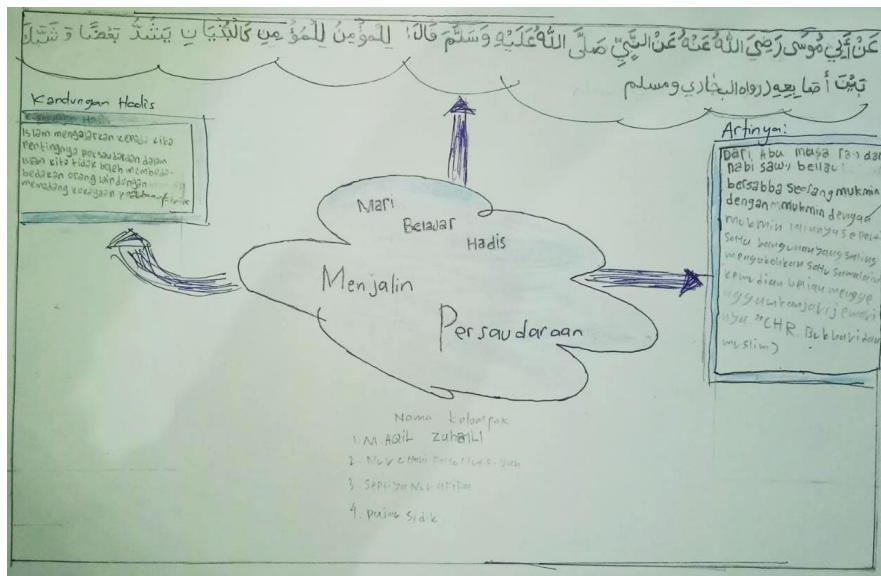 عَنْ أَبِي مُوْسَى رَضِيَ اللهُ عَنْهُ عَنِ النَّبِيِّ صَلَّى اللهُ عَلَيْهِ وَسَلَّمَ قَالَ: لِلْمُؤْمِنُ لِلْمُؤْمِنِ كَالْبُنْيَانِ يَشُدُّ بَعْضًا وَشَبَّكَ
بَيْنَ أَصَابِعِهِ (رواه البخاري ومسلم
Kandungan Hadis
Kandungan Hadis
Islam mengajarkan kepada kita
Pentingnya persaudaraan dalam
kita tidak boleh membeda-
bedakan orang lain dengan
memandang kekayaan
Artinya:
Dari Abu musa ra, dari
nabi saw, beliau
bersabba seorang mukmin
dengan mukmin dengan
mukmin lainnya seper
satu bangunan yang saling
mengokohkan satu sama lain
kemudian beliau mengge
nggamkan jari jemari
nya." CHR. Bukhari dan
muslim)
Mari
Belajar
Hadis
Menjalin
Persaudaraan
Nama kelompok
1. M. AQIL ZUHAILI
2.
3. Septiya Nur
4. Pajar Sidik